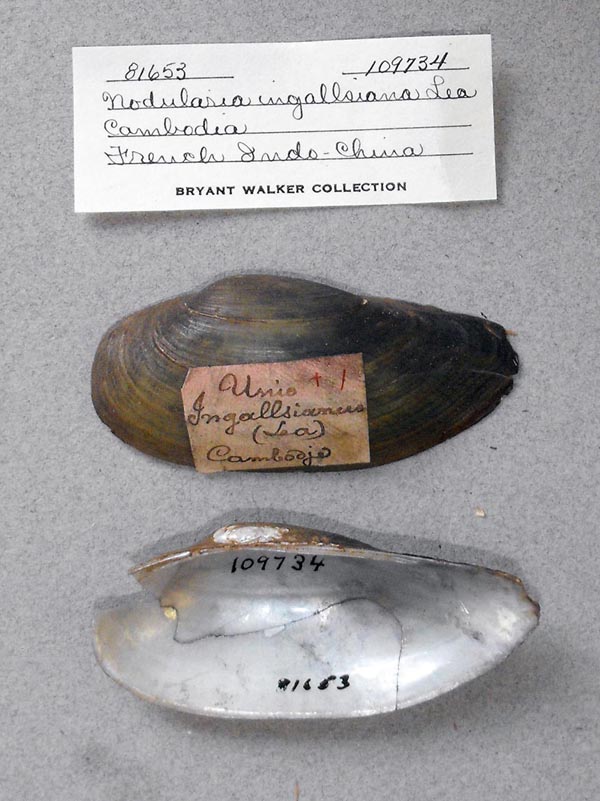 81653 109734
Nodularia ingallsiana Lea
Cambodia
French Indo-China
BRYANT WALKER COLLECTION
Unio + 1
Ingallsianus
(Lea)
Cambodje
109734
81653